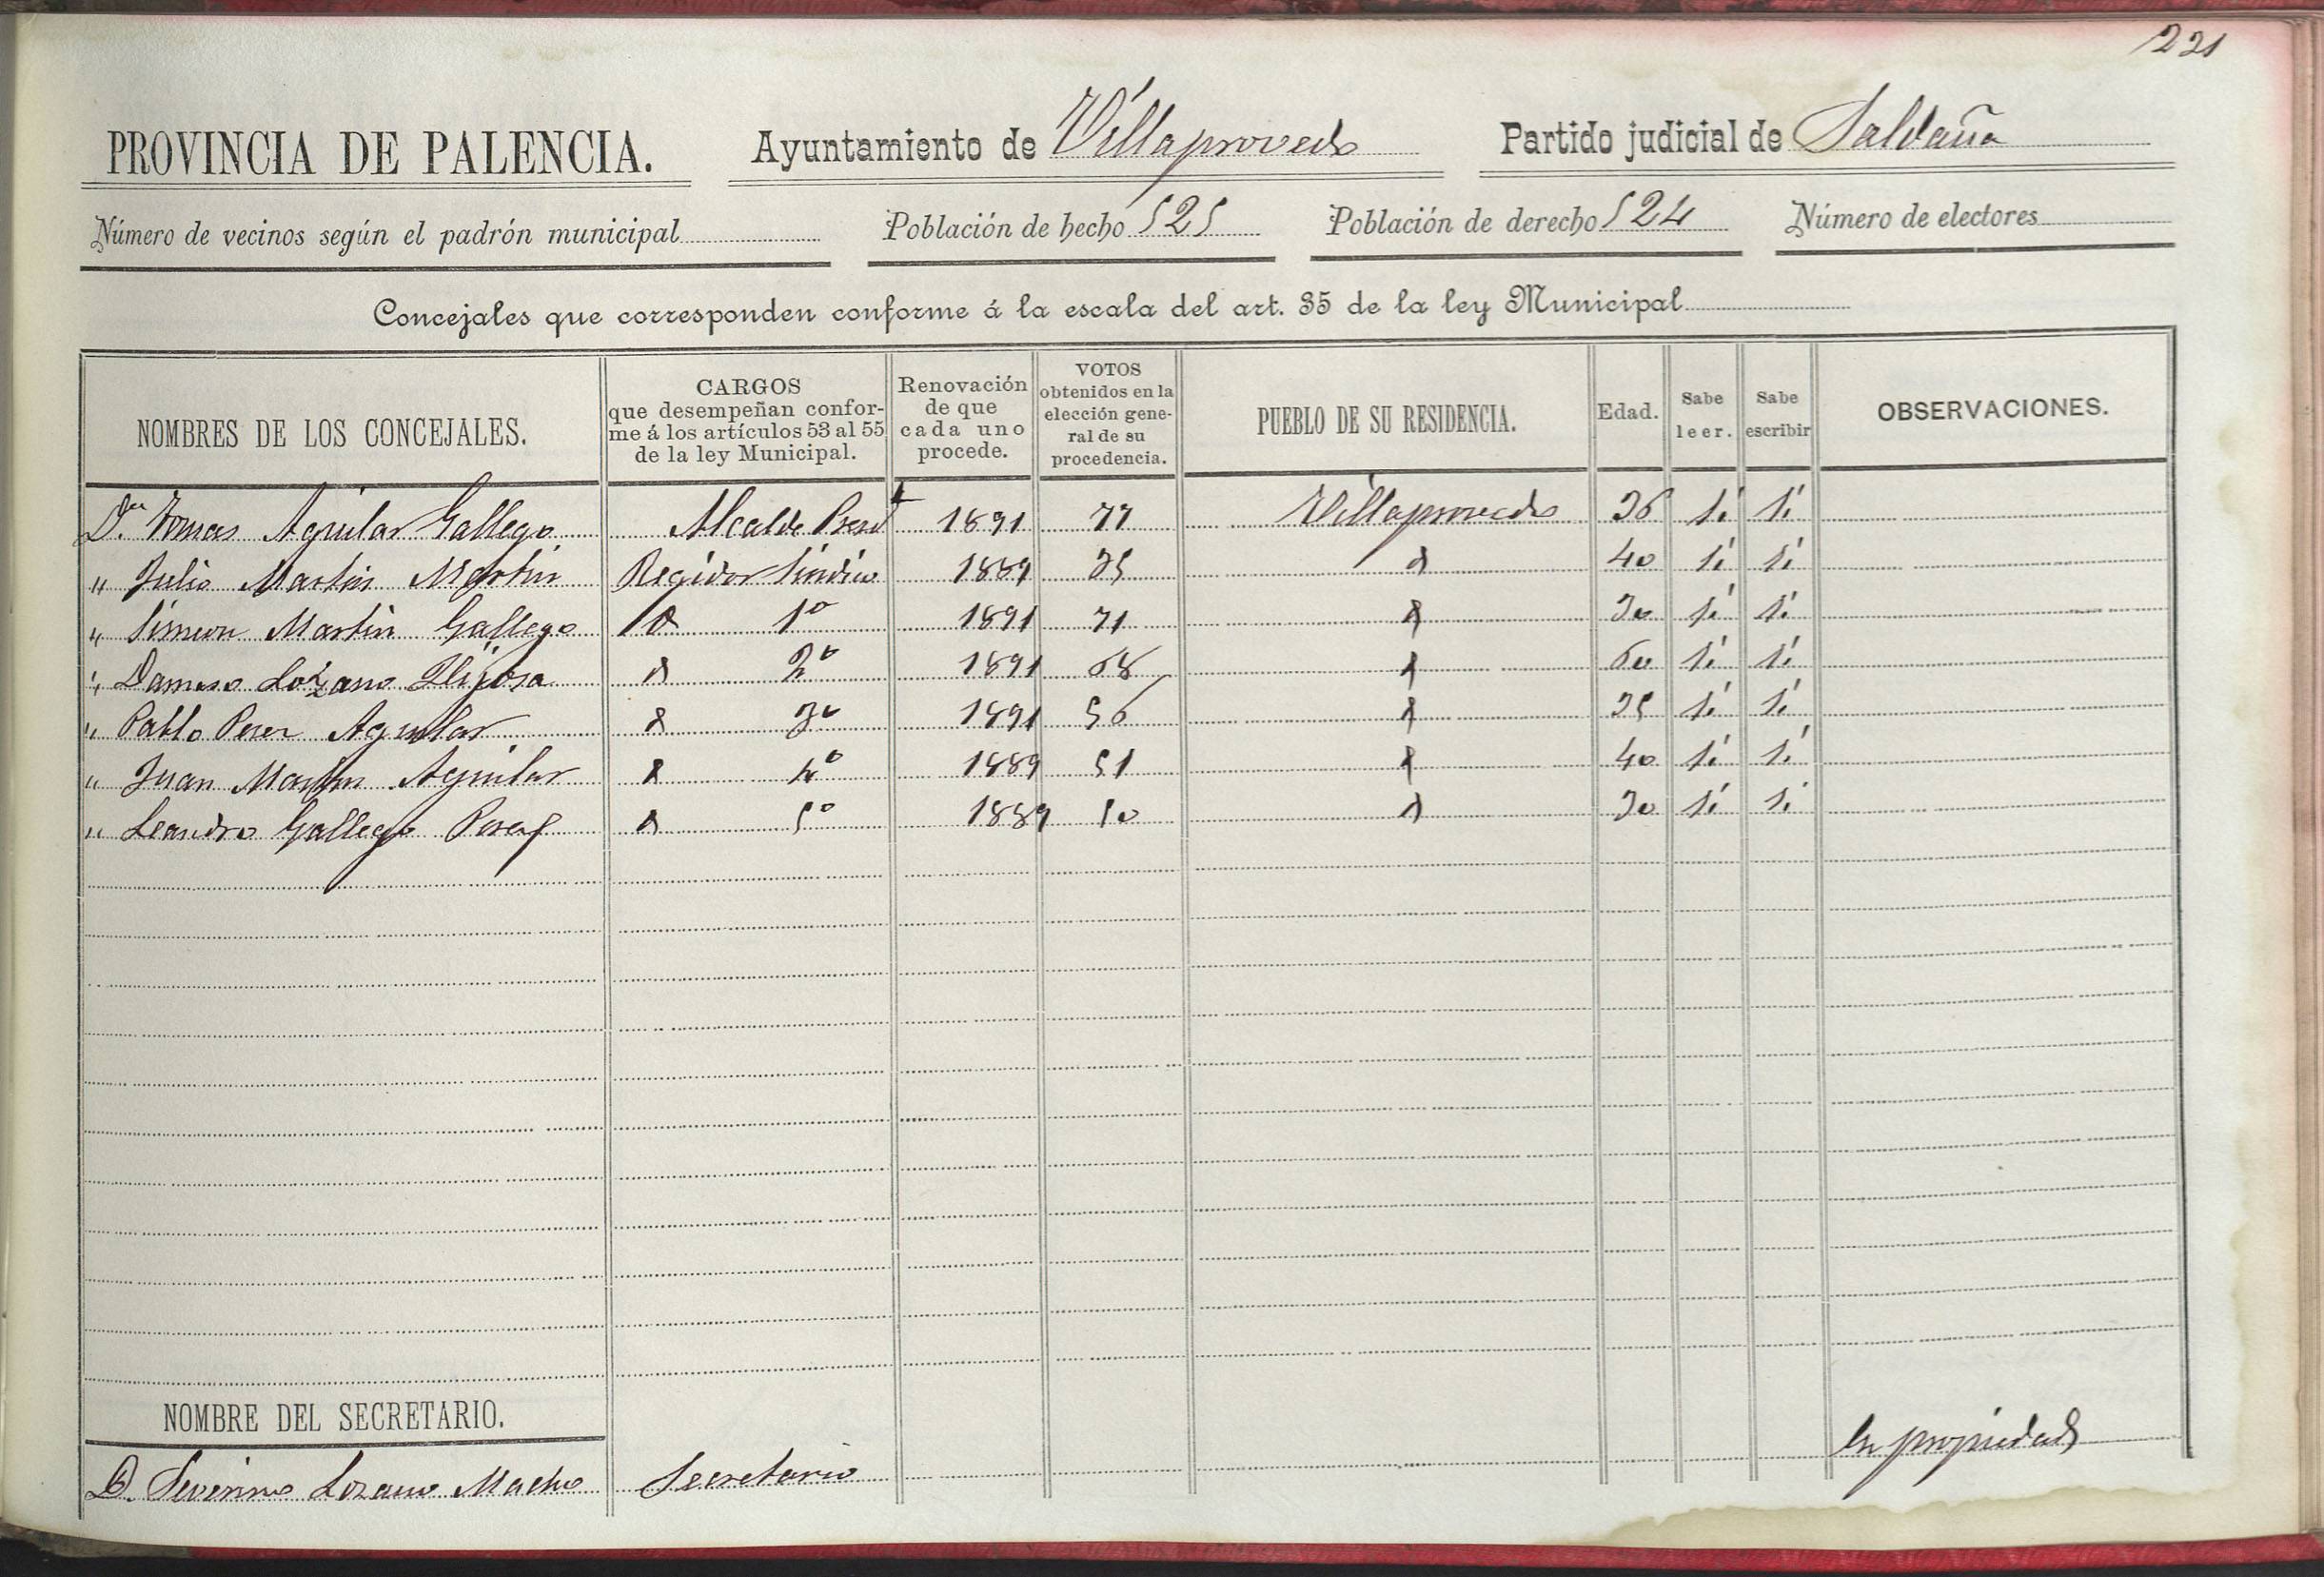 221
PROVINCIA DE PALENCIA. Ayuntamiento de Villaprovedo Partido judicial de Saldaña
Número de vecinos según el padrón municipal Población de hecho 525 Población de derecho 524 Número de electores
Concejales que corresponden conforme á la escala del art. 35 de la ley Municipal
NOMBRES DE LOS CONCEJALES.
CARGOS
que desempeñan confor-
me á los artículos 53 al 55
de la ley Municipal.
Renovación
de que
cada uno
procede.
VOTOS
obtenidos en la
elección gene-
ral de su
procedencia.
PUEBLO DE SU RESIDENCIA.
Edad.
Sabe
leer.
Sabe
escribir
OBSERVACIONES.
Dn. Tomas Aguilar Gallego Alcalde Presdte 1891 77 Villaprovedo 36 si si
" Julio Martin Martin Regidor Sindico 1889 35 40 si si
" Simeon Martin Gallego 1º 1891 71 30 si si
" Damaso Lozano 2º 1891 68 60 si si
" Pablo Perez Aguilar 3º 1891 56 35 si si
" Juan Martin Aguilar 4º 1889 51 40 si si
" Leandro Gallego Perez 5º 1889 50 30 si si
NOMBRE DEL SECRETARIO.
D. Severino Lozano Macho Secretario En propiedad